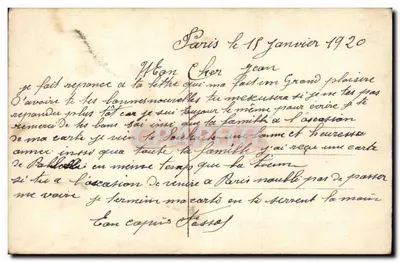 Paris le 15 Janvier 1920
Mon Cher Jean
je fait reponce a ta lettre qui ma fait un Grand plaisire
D'avoire te tes bonnes nouvelles tu mexcusera si je ne tes pas
repondu plus tot car je suis toujour le même pour ecrire je te
remerci de tes bons ainsi que ta famille a l'ocasion
de ma carte je vien te une bonne et heureuse
annee insi que toute ta famille j'ai reçu une carte
de en meme temp que la tienne
si tu a l'ocasion de venire a Paris noubli pas de passer
me voire je termin ma carte en te serrent la main
Ton copin